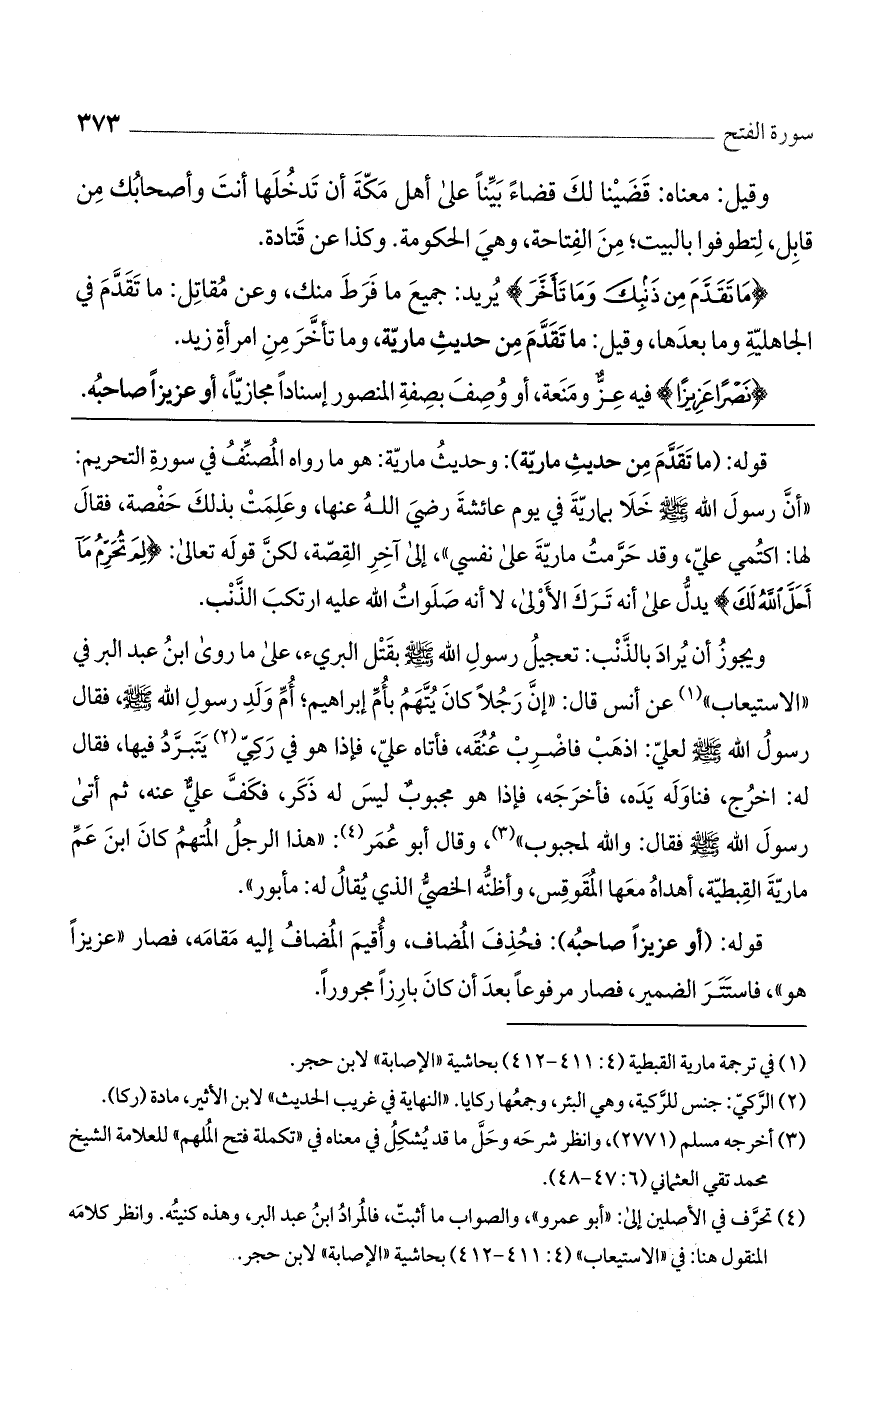 سورة الفتح ٣٧٣
وقيل: معناه: قَضَيْنا لكَ قضاءً بَيِّناً على أهل مكّةَ أن تَدخُلَها أنتَ وأصحابُك مِن
قابِل، لِتطوفوا بالبيت؛ مِنَ الفِتاحة، وهيَ الحكومة. وكذا عن قَتادة.
﴿مَا تَقَدَّمَ مِن ذَنۢبِكَ وَمَا تَأَخَّرَ﴾ يُريد: جميعَ ما فَرَطَ منك، وعن مُقاتِل: ما تَقَدَّمَ في
الجاهليّةِ وما بعدَها، وقيل: ما تَقَدَّمَ مِن حديثِ ماريّة، وما تأخَّرَ مِنِ امرأةِ زيد.
﴿نَصْرًا عَزِيزًا﴾ فيه عِزٌّ ومَنَعة، أو وُصِفَ بصِفةِ المنصور إسناداً مجازيّاً، أو عزيزاً صاحبُه.
قوله: (ما تَقَدَّمَ مِن حديثِ ماريّة): وحديثُ ماريّة: هو ما رواه المُصنِّفُ في سورةِ التحريم:
«أنَّ رسولَ الله ﷺ خَلَا بماريّةَ في يوم عائشةَ رضيَ اللهُ عنها، وعَلِمَتْ بذلكَ حَفْصة، فقالَ
لها: اكتُمي عليّ، وقد حَرَّمتُ ماريّةَ على نفسي»، إلى آخِرِ القِصّة، لكنَّ قولَه تعالى: ﴿لِمَ تُحَرِّمُ مَآ
أَحَلَّ ٱللَّهُ لَكَ﴾ يدلُّ على أنه تَرَكَ الأَوْلى، لا أنه صَلَواتُ الله عليه ارتكبَ الذَّنْب.
ويجوزُ أن يُرادَ بالذَّنْب: تعجيلُ رسولِ الله ﷺ بقَتْل البريء، على ما روىٰ ابنُ عبد البر في
«الاستيعاب»(١) عن أنس قال: «إنَّ رَجُلاً كانَ يُتَّهَمُ بأُمِّ إبراهيم؛ أُمِّ وَلَدِ رسولِ الله ﷺ، فقال
رسولُ الله ﷺ لعليّ: اذهَبْ فاضْرِبْ عُنُقَه، فأتاه عليّ، فإذا هو في رَكِيّ(٢) يَتَبرَّدُ فيها، فقال
له: اخرُج، فناوَلَه يَدَه، فأخرَجَه، فإذا هو مجبوبٌ ليسَ له ذَكَر، فكَفَّ عليٌّ عنه، ثم أتىٰ
رسولَ الله ﷺ فقال: والله لمجبوب»(٣)، وقال أبو عُمَر(٤): «هذا الرجلُ المُتهمُ كانَ ابنَ عَمِّ
ماريّةَ القِبطيّة، أهداهُ معَها المُقَوقِس، وأظنُّه الخصيُّ الذي يُقالُ له: مأبور».
قوله: (أو عزيزاً صاحبُه): فحُذِفَ المُضاف، وأُقيمَ المُضافُ إليه مَقامَه، فصار «عزيزاً
هو»، فاستَتَرَ الضمير، فصار مرفوعاً بعدَ أن كانَ بارِزاً مجروراً.
(١) في ترجمة مارية القبطية (٤: ٤١١-٤١٢) بحاشية «الإصابة» لابن حجر.
(٢) الرَّكيّ: جنس للرَّكية، وهي البئر، وجمعُها ركايا. «النهاية في غريب الحديث» لابن الأثير، مادة (ركا).
(٣) أخرجه مسلم (٢٧٧١)، وانظر شرحَه وحَلَّ ما قد يُشكِلُ في معناه في «تكملة فتح المُلهم» للعلامة الشيخ
محمد تقي العثماني (٦: ٤٧-٤٨).
(٤) تحرَّف في الأصلين إلىٰ: «أبو عمرو»، والصواب ما أثبتّ، فالمُرادُ ابنُ عبد البر، وهذه كنيتُه. وانظر كلامَه
المنقول هنا: في «الاستيعاب» (٤: ٤١١-٤١٢) بحاشية «الإصابة» لابن حجر.